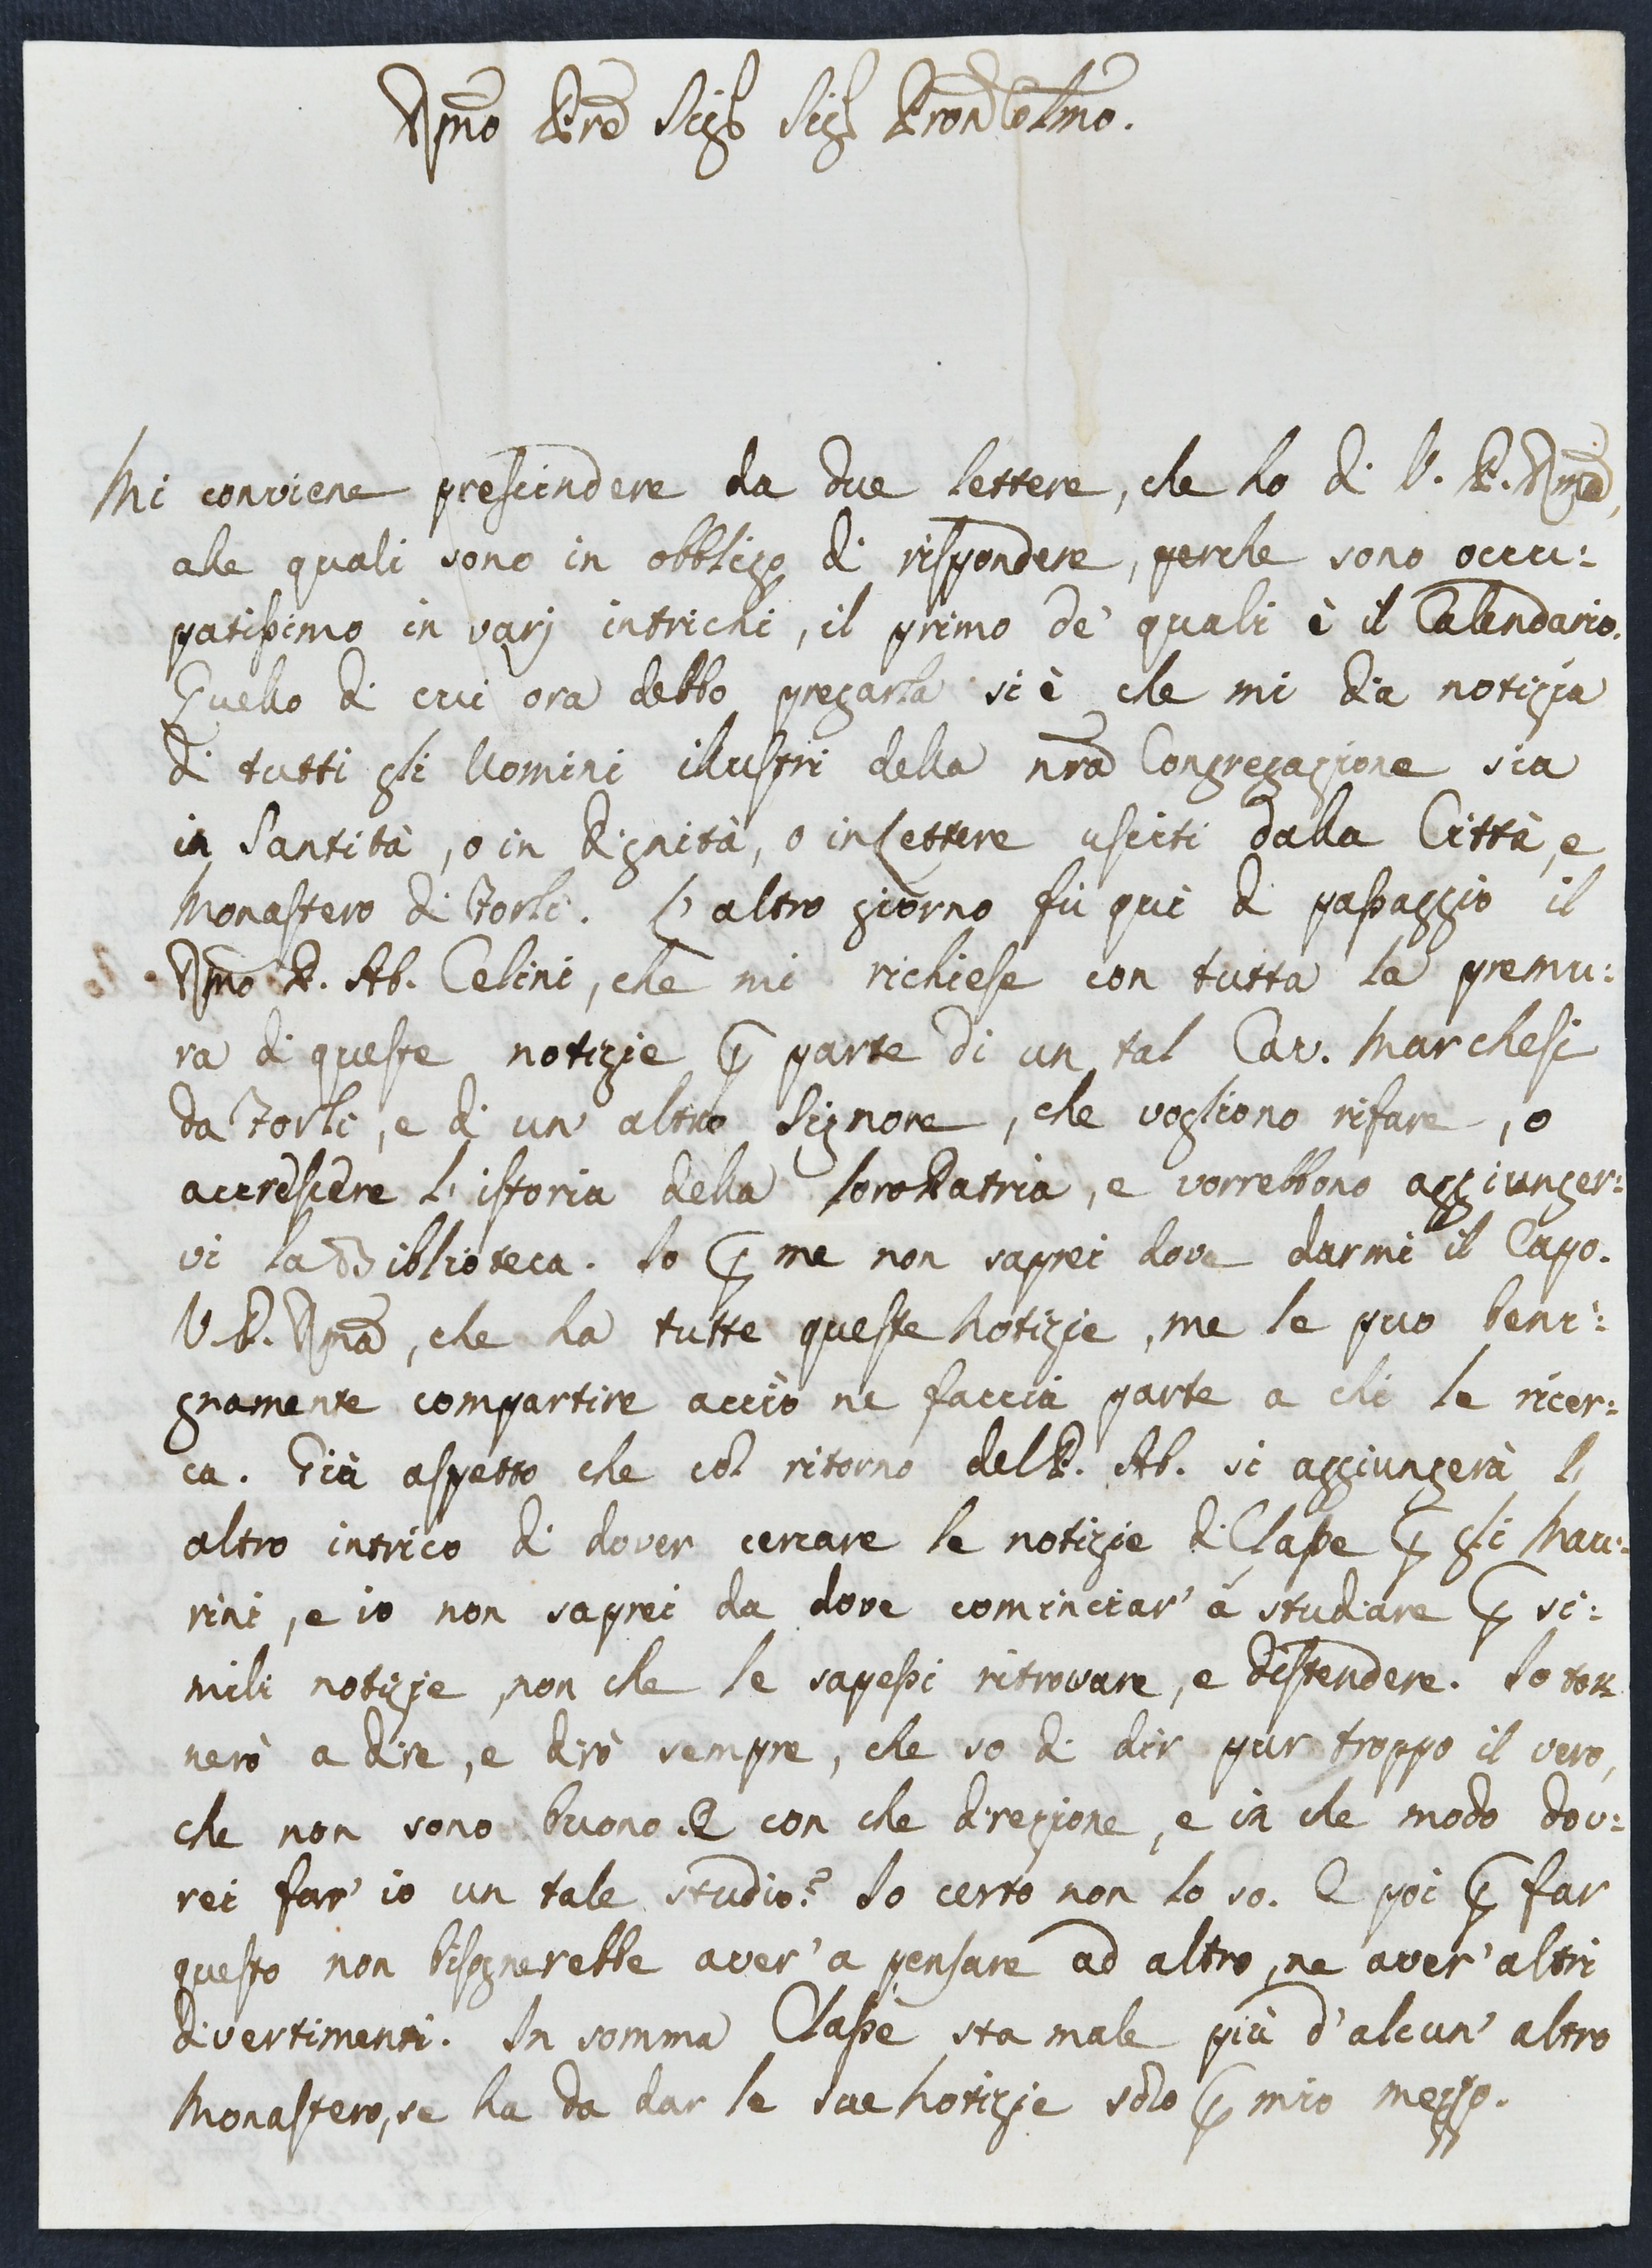 Rmo Pre Sigr Sigr Pron Colmo.
Mi conviene prescindere da due lettere, che ho di V. P. Rma,
alle quali sono in obbligo di rispondere, perche sono occu:
patissimo in varj intrichi, il primo de' quali è il Calendario.
Quello di cui ora debbo pregarla si è che mi dia notizia
di tutti gli Uomini illustri della nra Congregazione sia
in Santità, o in Dignità, o in Lettere usciti dalla Città, e
Monastero di Forli. L'altro giorno fù qui di passaggio il
Rmo P. Ab. Celini, che mi richiese con tutta la premu:
ra di queste notizie p parte di un tal Cav. Marchesi
da Forli, e di un' altro Signore, che vogliono rifare, o
accrescere l'istoria della loro Patria, e vorrebbono aggiunger:
vi la Biblioteca. Io p me non saprei dove darmi il Capo.
V. P. Rma, che ha tutte queste Notizie, me le puo beni:
gnamente compartire acciò ne faccia parte a chi le ricer:
ca. Già aspetto che col ritorno del P. Ab. si aggiungerà l'
altro intrico di dover cercare le notizie di Classe p gli Mau:
rini, e io non saprei da dove cominciar' à studiare p si:
mili notizie, non che le sapessi ritrovare, e distendere. Io tor:
nerò a dire, e dirò sempre, che so di dir pur troppo il vero,
che non sono buono. E con che direzione, e in che modo dov:
rei far' io un tale studio? Io certo non lo so. E poi p far
questo non bisognerebbe aver' a pensare ad altro, ne aver' altri
divertimenti. In somma Classe sta male più d'alcun' altro
Monastero, se ha da dar le sue Notizie solo p mio mezzo.